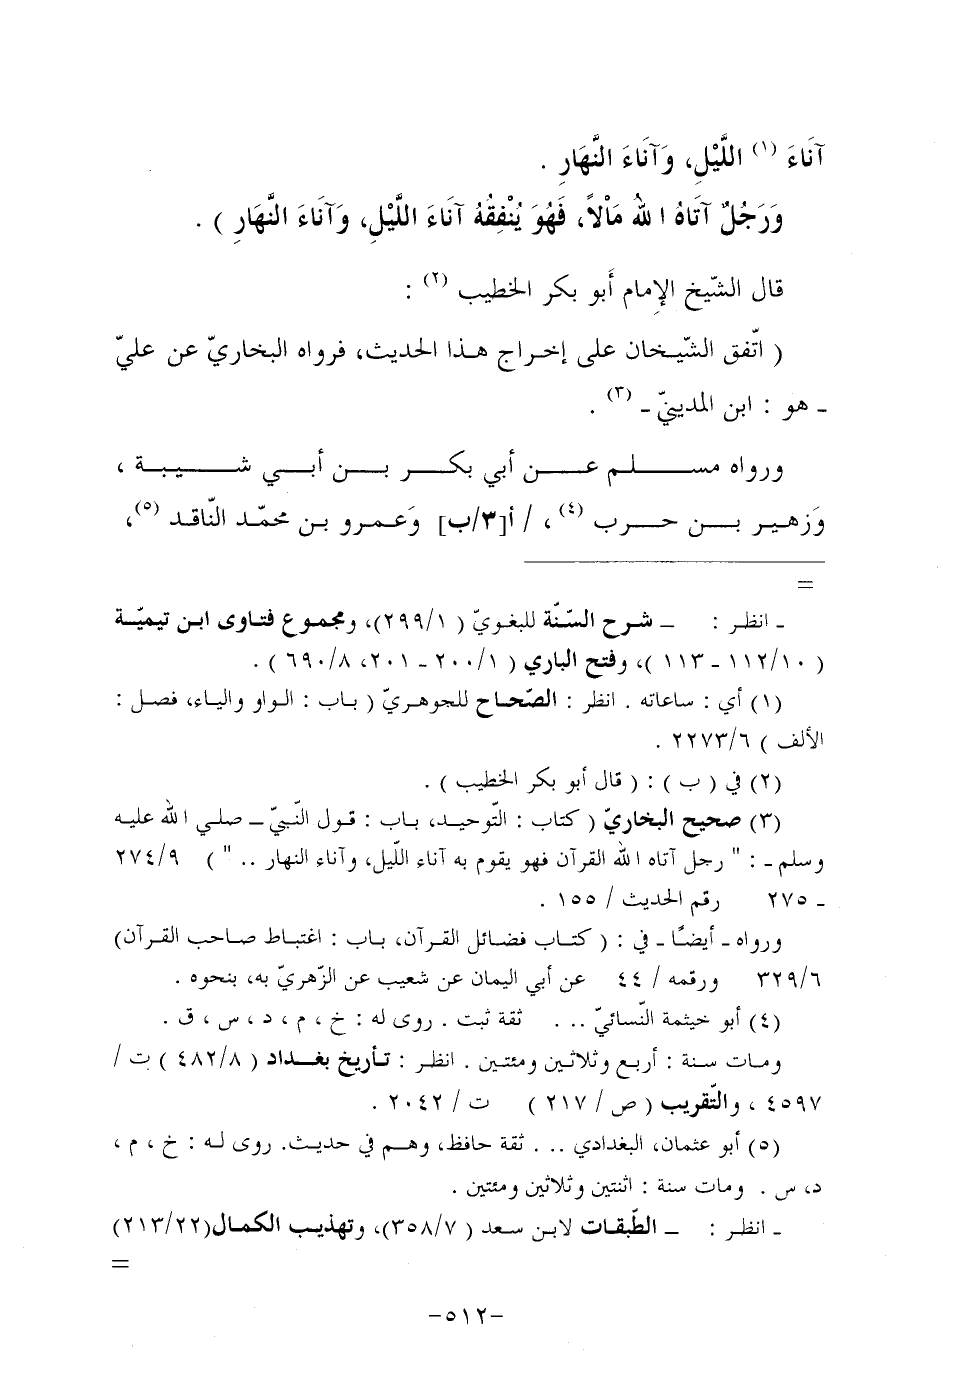 آنَاءَ (١) اللَّيْلِ، وَآنَاءَ النَّهَارِ .
وَرَجُلٌ آتَاهُ اللهُ مَالاً، فَهُوَ يُنْفِقُهُ آنَاءَ اللَّيْلِ، وَآنَاءَ النَّهَارِ ) .
قال الشّيخ الإمام أبو بكر الخطيب (٢) :
( اتّفق الشّيخان على إخراج هذا الحديث، فرواه البخاريّ عن عليّ
ـ هو : ابن المدينيّ ـ (٣) .
ورواه مسلم عن أبي بكر بن أبي شيبة ،
وَزهير بن حرب (٤) ، / أ[٣/ب] وَعمرو بن محمّد النّاقد (٥)،
=
ـ انظر : ـ شرح السّنّة للبغويّ ( ٢٩٩/١)، ومجموع فتاوى ابن تيميّة
( ١١٢/١٠ ـ ١١٣ )، وفتح الباري ( ٢٠٠/١ ـ ٢٠١، ٦٩٠/٨ ) .
(١) أي : ساعاته . انظر : الصّحاح للجوهريّ ( باب : الواو والياء، فصل :
الألف ) ٢٢٧٣/٦ .
(٢) في ( ب ) : ( قال أبو بكر الخطيب ) .
(٣) صحيح البخاريّ ( كتاب : التّوحيد، باب : قول النّبيّ ـ صلي الله عليه
وسلم ـ : " رجل آتاه الله القرآن فهو يقوم به آناء اللّيل، وآناء النهار .. " ) ٢٧٤/٩
ـ ٢٧٥ رقم الحديث / ١٥٥ .
ورواه ـ أيضًا ـ في : ( كتاب فضائل القرآن، باب : اغتباط صاحب القرآن)
٣٢٩/٦ ورقمه / ٤٤ عن أبي اليمان عن شعيب عن الزّهريّ به، بنحوه .
(٤) أبو خيثمة النّسائيّ .. . ثقة ثبت . روى له : خ ، م ، د ، س ، ق .
ومات سنة : أربع وثلاثين ومئتين . انظر : تأريخ بغداد ( ٤٨٢/٨ ) ت /
٤٥٩٧ ، والتّقريب ( ص / ٢١٧ ) ت / ٢٠٤٢ .
(٥) أبو عثمان، البغدادي .. . ثقة حافظ، وهم في حديث. روى له : خ ، م ،
د، س . ومات سنة : اثنتين وثلاثين ومئتين .
ـ انظر : ـ الطّبقات لابن سعد ( ٣٥٨/٧)، وتهذيب الكمال(٢١٣/٢٢)
=
-٥١٢-